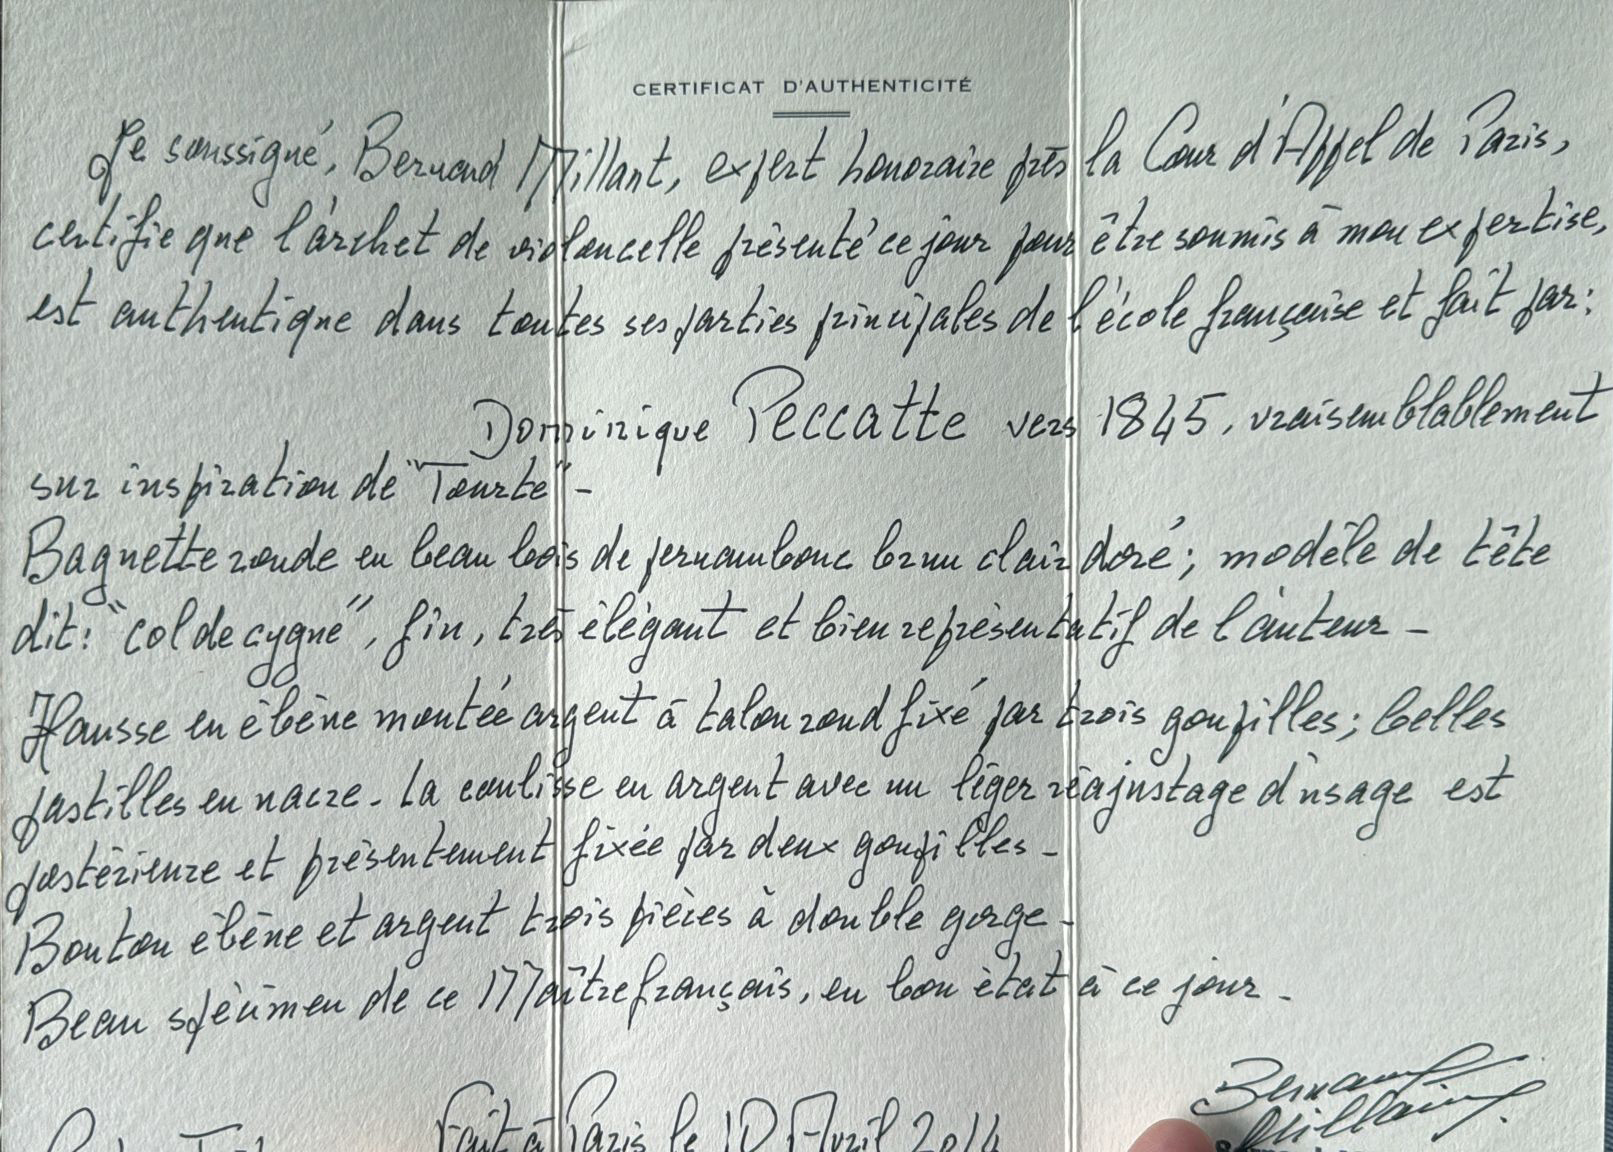 CERTIFICAT D'AUTHENTICITÉ
Je soussigné, Bernard Millant, expert honoraire près la Cour d'Appel de Paris,
certifie que l'archet de violoncelle présenté ce jour pour être soumis à mon expertise,
est authentique dans toutes ses parties principales de l'école française et fait par:
Dominique Peccatte vers 1845, vraisemblablement
sur inspiration de "Tourte" -
Baguette ronde en beau bois de pernambouc brun clair doré; modèle de tête
dit: "col de cygne", fin, très élégant et bien représentatif de l'auteur -
Hausse en ébène montée argent à talon rond fixé par trois goupilles; belles
pastilles en nacre. La coulisse en argent avec un léger réajustage d'usage est
postérieure et présentement fixée par deux goupilles -
Bouton ébène et argent trois pièces à double gorge -
Beau spécimen de ce Maître français, en bon état à ce jour -
Bernard
Millant
Fait à Paris le 10 Avril 2014